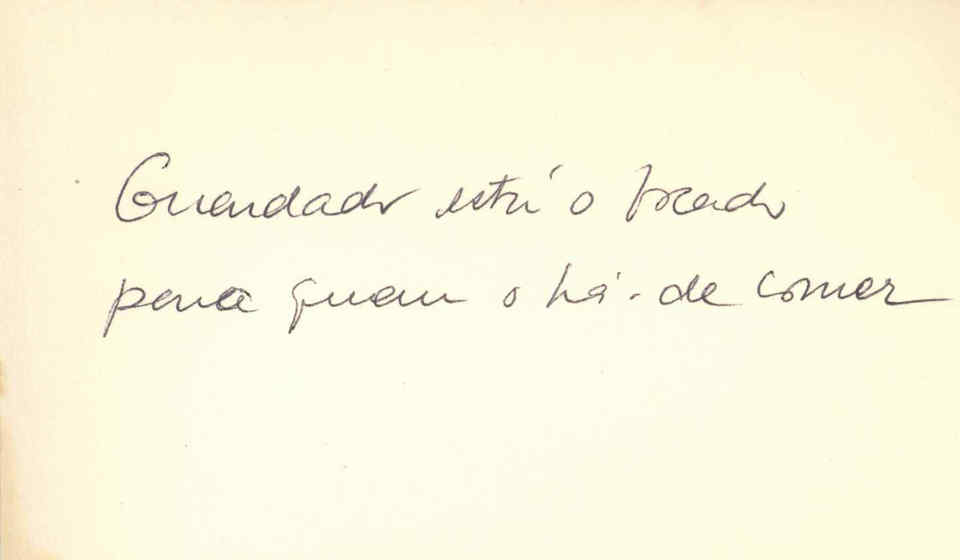 Guardado está o bocado
para quem o há-de comer